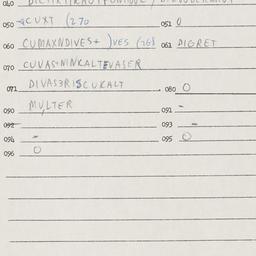 050 CUXT (270 051 0
060 CUMAXNDIVES+ )VES (268 061 DIGRET
070 CUVAS+NINKALTEVASER
071 DIVAS3RISCUKALT 080 0
090 MULTER 091 -
092 093 -
094 - 095 0
096 0